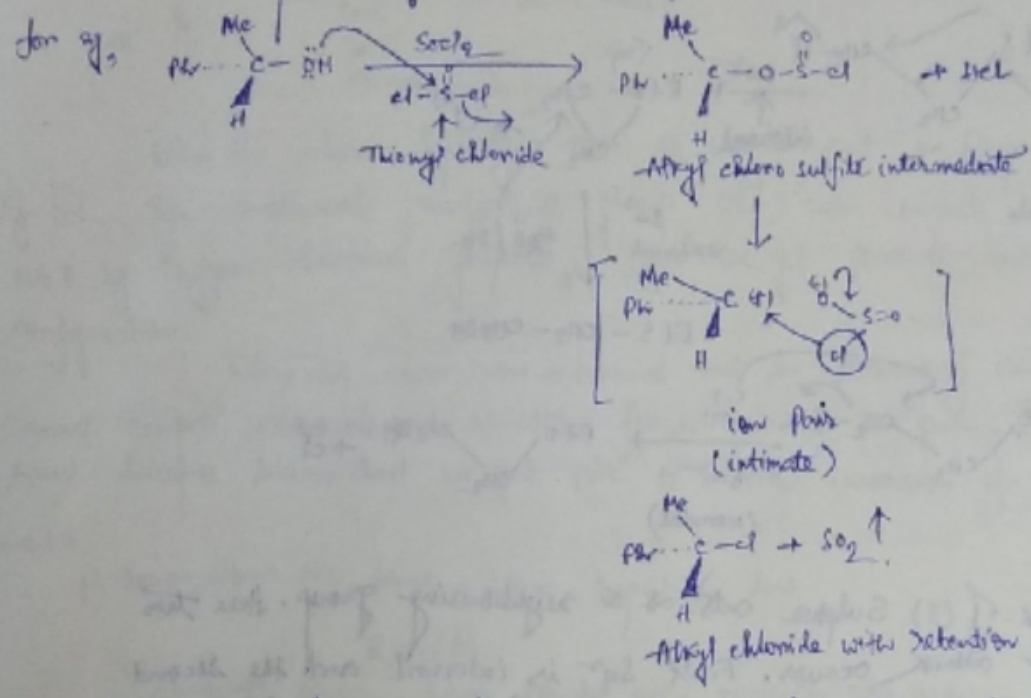 for eg,
Me
Ph C - ÖH
H
SOCl2
O
Cl-S-Cl
Thionyl chloride
Me O
Ph C-O-S-Cl + HCl
H
Alkyl chloro sulfite intermediate
Me
Ph C (+)
H
(-)
O
S=O
Cl
ion Pair
(intimate)
Me
Ph C-Cl + SO2 ↑
H
Alkyl chloride with retention